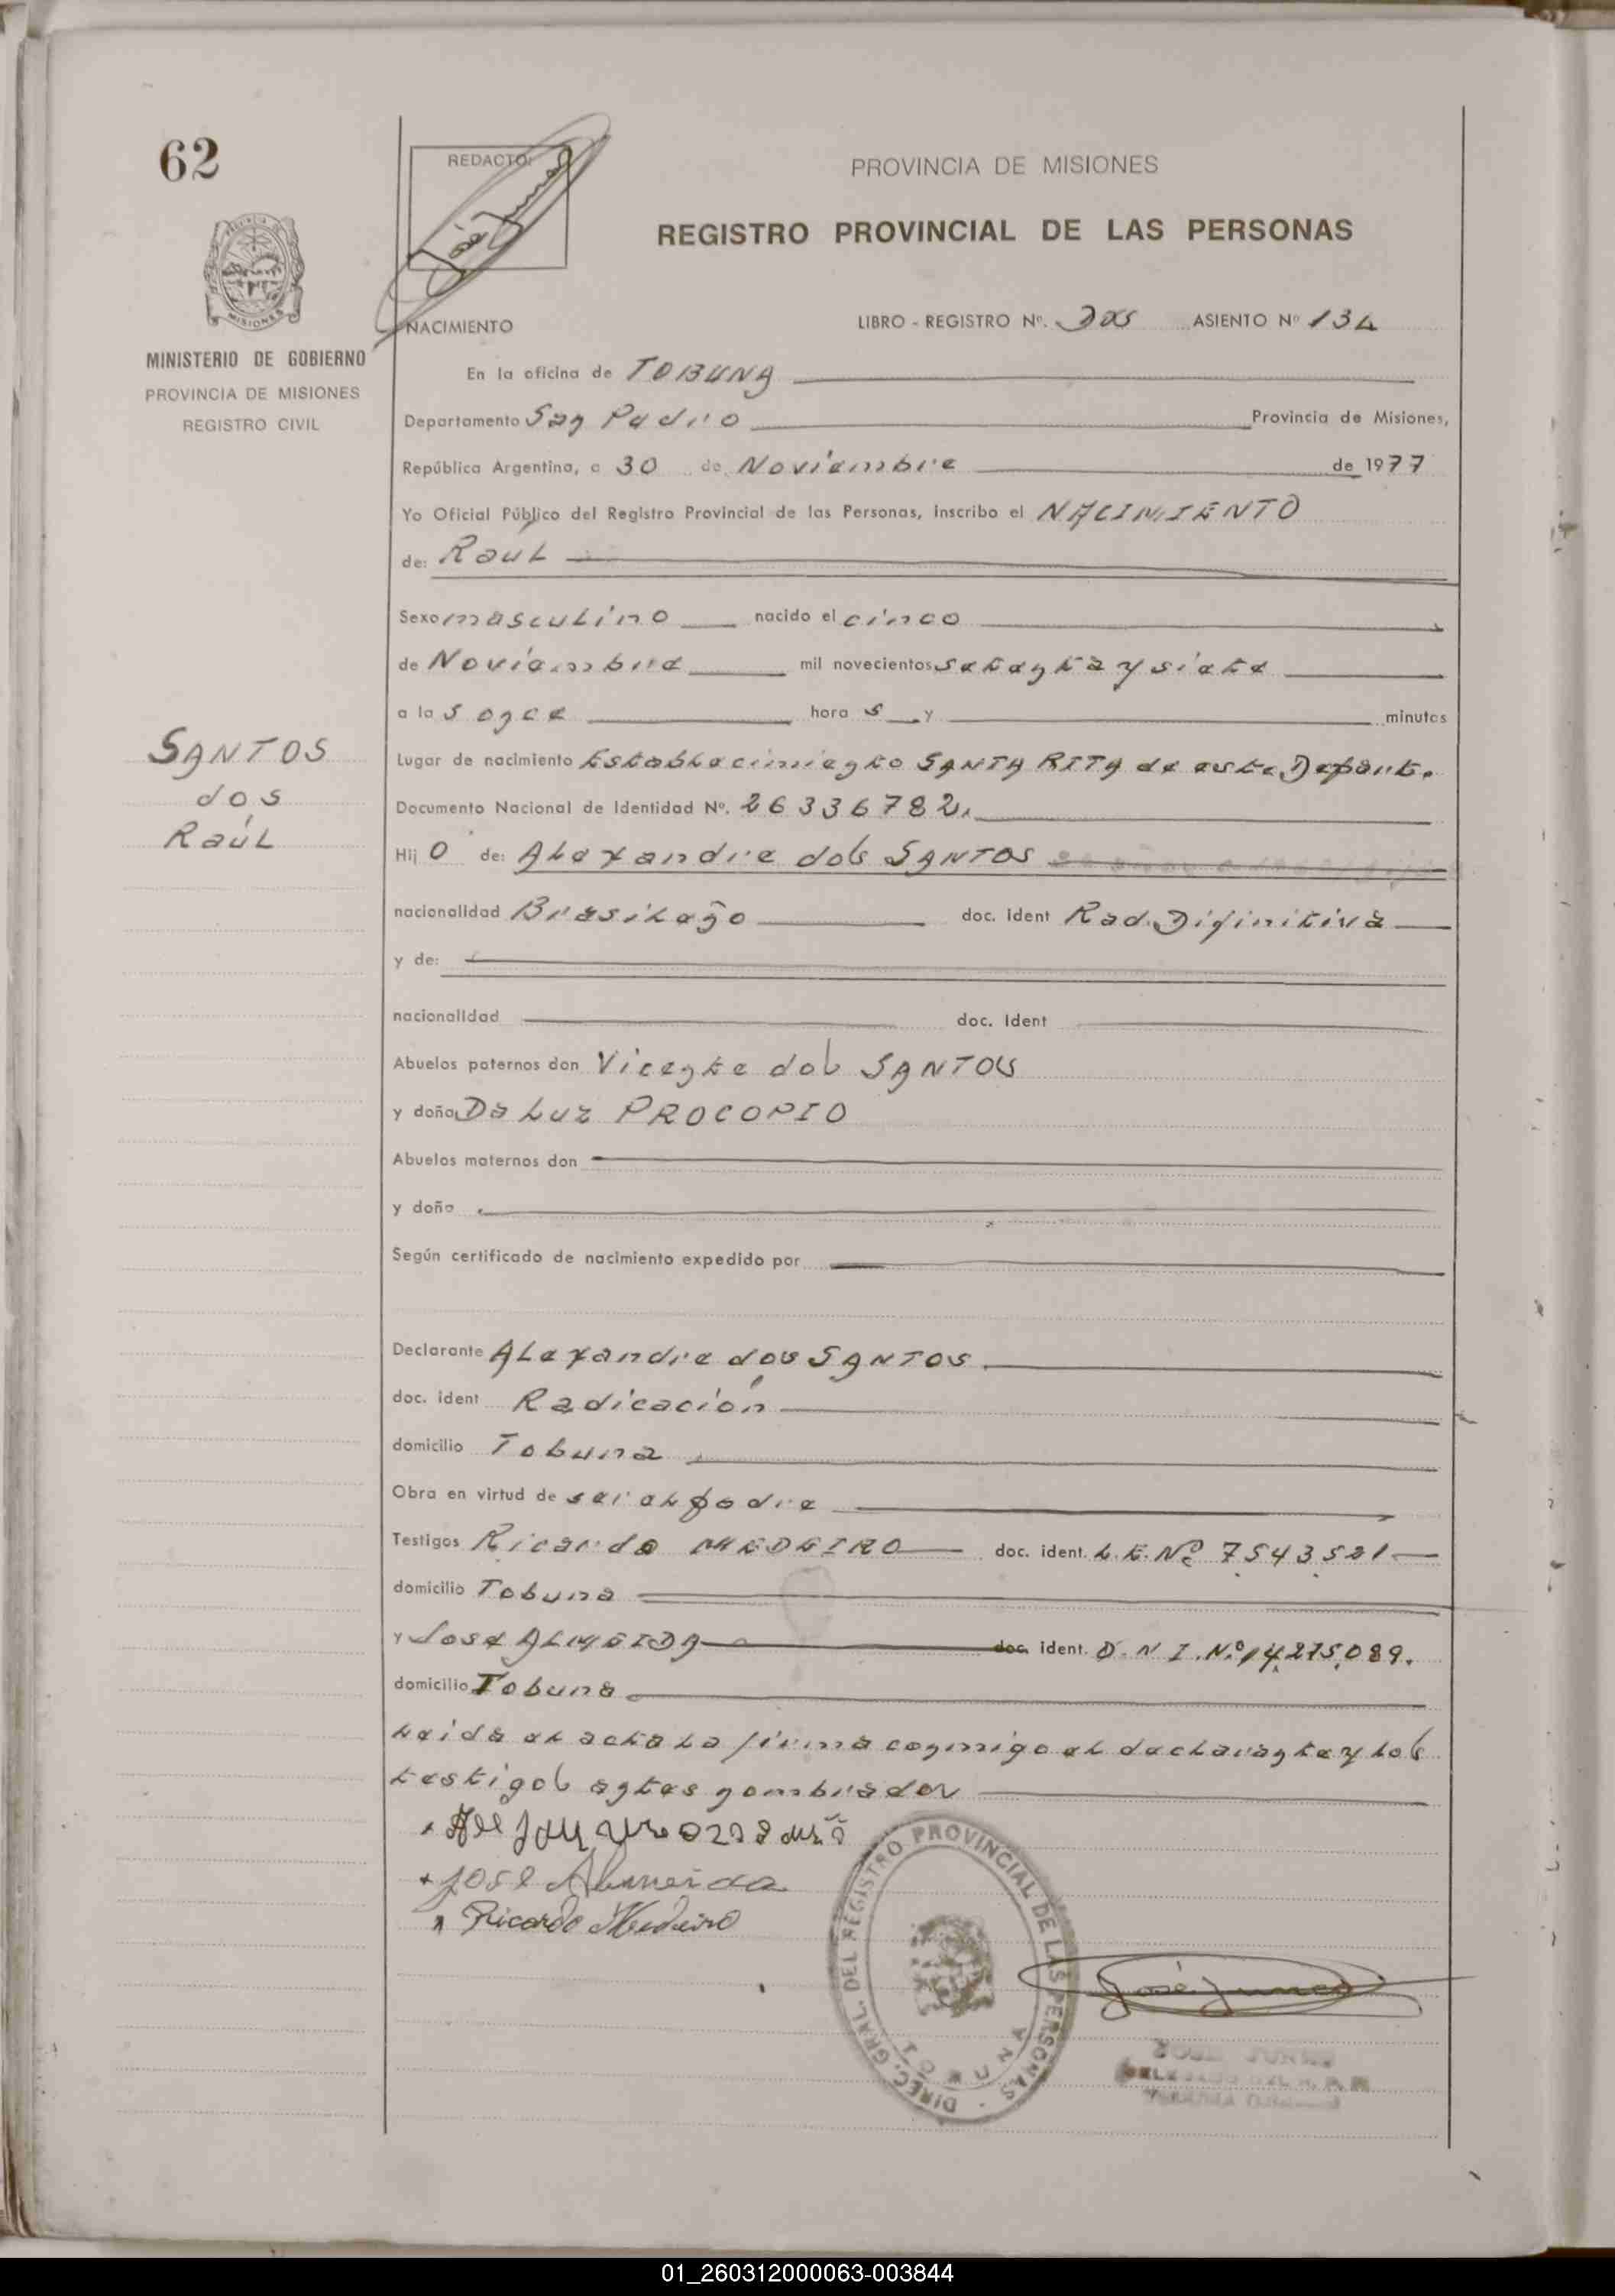 62
REDACTO:
PROVINCIA DE MISIONES
REGISTRO PROVINCIAL DE LAS PERSONAS
NACIMIENTO
LIBRO - REGISTRO Nº. Dos ASIENTO Nº 134
MISIONES
MINISTERIO DE GOBIERNO
PROVINCIA DE MISIONES
REGISTRO CIVIL
En la oficina de TOBUNA
Departamento San Pedro Provincia de Misiones,
República Argentina, a 30 de Noviembre de 1977
Yo Oficial Público del Registro Provincial de las Personas, inscribo el NACIMIENTO
de: Raúl
Sexo masculino nacido el cinco
de Noviembre mil novecientos setenta y siete
a las once hora s y minutos
SANTOS
dos
Raúl
Lugar de nacimiento Establecimiento SANTA RITA de este Depart.
Documento Nacional de Identidad Nº. 26336782.
Hij o de: Alexandre dos SANTOS
nacionalidad Brasileño doc. ident Rad. Difinitiva
y de:
nacionalidad doc. ident
Abuelos paternos don Vicente dos SANTOS
y doña Da Luz PROCOPIO
Abuelos maternos don
y doña
Según certificado de nacimiento expedido por
Declarante Alexandre dos SANTOS.
doc. ident Radicación
domicilio Tobuna
Obra en virtud de ser el padre
Testigos Ricardo MEDEIRO doc. ident. L.E.Nº 7.543.521
domicilio Tobuna
y José ALMEIDA doc. ident. D.N.I.Nº 14.275.089.
domicilio Tobuna
Leida el acta la firma conmigo el declarante y los
testigos antes nombrados
José Almeida
Ricardo Medeiro
DIREC. GRAL. DEL REGISTRO PROVINCIAL DE LAS PERSONAS
TOBUNA
José Junco
01_260312000063-003844